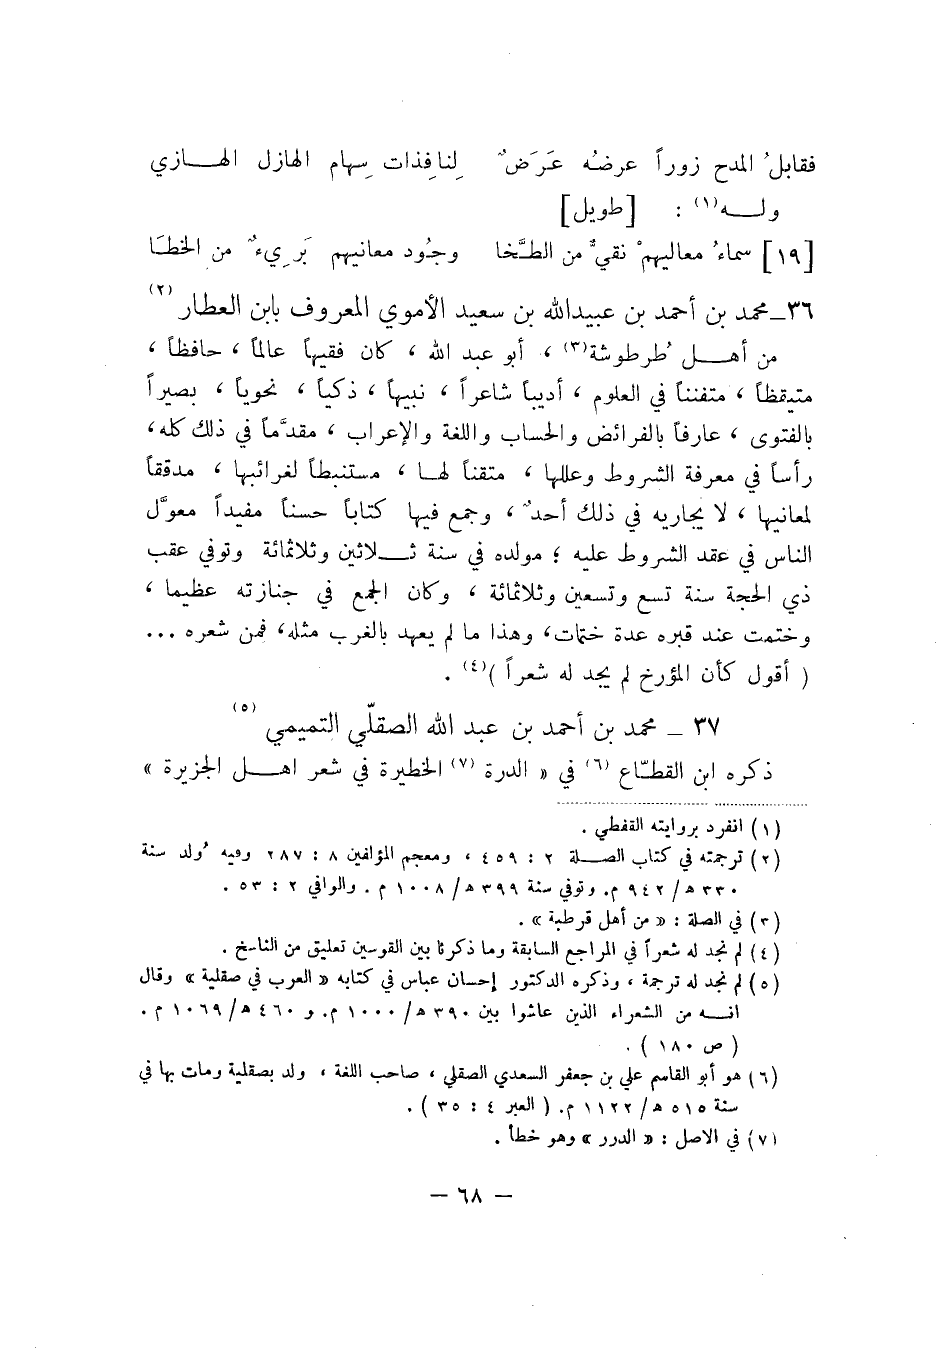 فقابلُ المدح زوراً عرضُه عَرَضٌ لِنافِذات سِهام الهازل الهازي
وله(١) : [طويل]
[١٩] سماءُ معاليهمْ نقيٌّ من الطَّخا وجُود معانيهم بَرِيءٌ من الخطَا
٣٦ـ محمد بن أحمد بن عبيدالله بن سعيد الأموي المعروف بابن العطار(٢)
من أهل طُرطوشة(٣) ، أبو عبد الله ، كان فقيهاً عالماً ، حافظاً ،
متيقظاً ، متفنناً في العلوم ، أديباً شاعراً ، نبيهاً ، ذكياً ، نحوياً ، بصيراً
بالفتوى ، عارفاً بالفرائض والحساب واللغة والإعراب ، مقدَّماً في ذلك كله،
رأساً في معرفة الشروط وعللها ، متقناً لها ، مستنبطاً لغرائبها ، مدققاً
لمعانيها ، لا يجاريه في ذلك أحدٌ ، وجمع فيها كتاباً حسناً مفيداً معوَّل
الناس في عقد الشروط عليه ؛ مولده في سنة ثلاثين وثلاثمائة وتوفي عقب
ذي الحجة سنة تسع وتسعين وثلاثمائة ، وكان الجمع في جنازته عظيما ،
وختمت عند قبره عدة ختمات، وهذا ما لم يعهد بالغرب مثله، فمن شعره ...
( أقول كأن المؤرخ لم يجد له شعراً )(٤) .
٣٧ ـ محمد بن أحمد بن عبد الله الصقلّي التميمي(٥)
ذكره ابن القطّاع(٦) في « الدرة(٧) الخطيرة في شعر اهل الجزيرة »
(١) انفرد بروايته القفطي .
(٢) ترجمته في كتاب الصلة ٢ : ٤٥٩ ، ومعجم المؤلفين ٨ : ٢٨٧ وفيه وُلد سنة
٣٣٠ ه/ ٩٤٢ م. وتوفي سنة ٣٩٩ ه/ ١٠٠٨ م . والوافي ٢ : ٥٣ .
(٣) في الصلة : « من أهل قرطبة » .
(٤) لم نجد له شعراً في المراجع السابقة وما ذكرنا بين القوسين تعليق من الناسخ .
(٥) لم نجد له ترجمة ، وذكره الدكتور إحسان عباس في كتابه « العرب في صقلية » وقال
انه من الشعراء الذين عاشوا بين ٣٩٠ ه/ ١٠٠٠ م. و ٤٦٠ ه/ ١٠٦٩ م .
( ص ١٨٠ ) .
(٦) هو أبو القاسم علي بن جعفر السعدي الصقلي ، صاحب اللغة ، ولد بصقلية ومات بها في
سنة ٥١٥ ه/ ١١٢٢ م. ( العبر ٤ : ٣٥ ) .
(٧) في الاصل : « الدرر » وهو خطأ .
— ٦٨ —